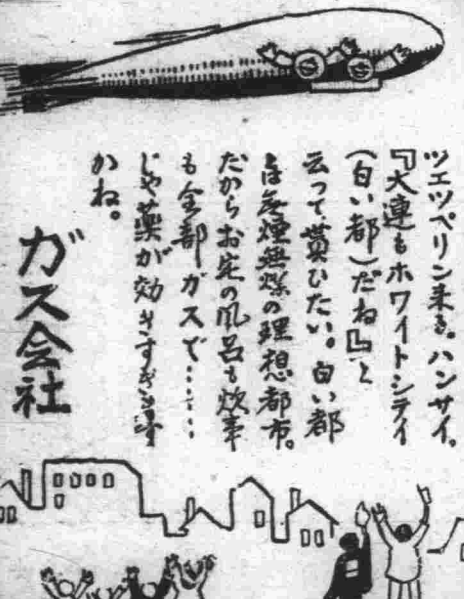 ツエツペリン来る。ハンサイ。
『大連もホワイトシテイ
(白い都)だね』と
云って貰ひたい。白い都
は無煙無煤の理想都市。
だからお宅の風呂も炊事
も全部ガスで……
じや薬が効きすぎます
かね。
ガス会社